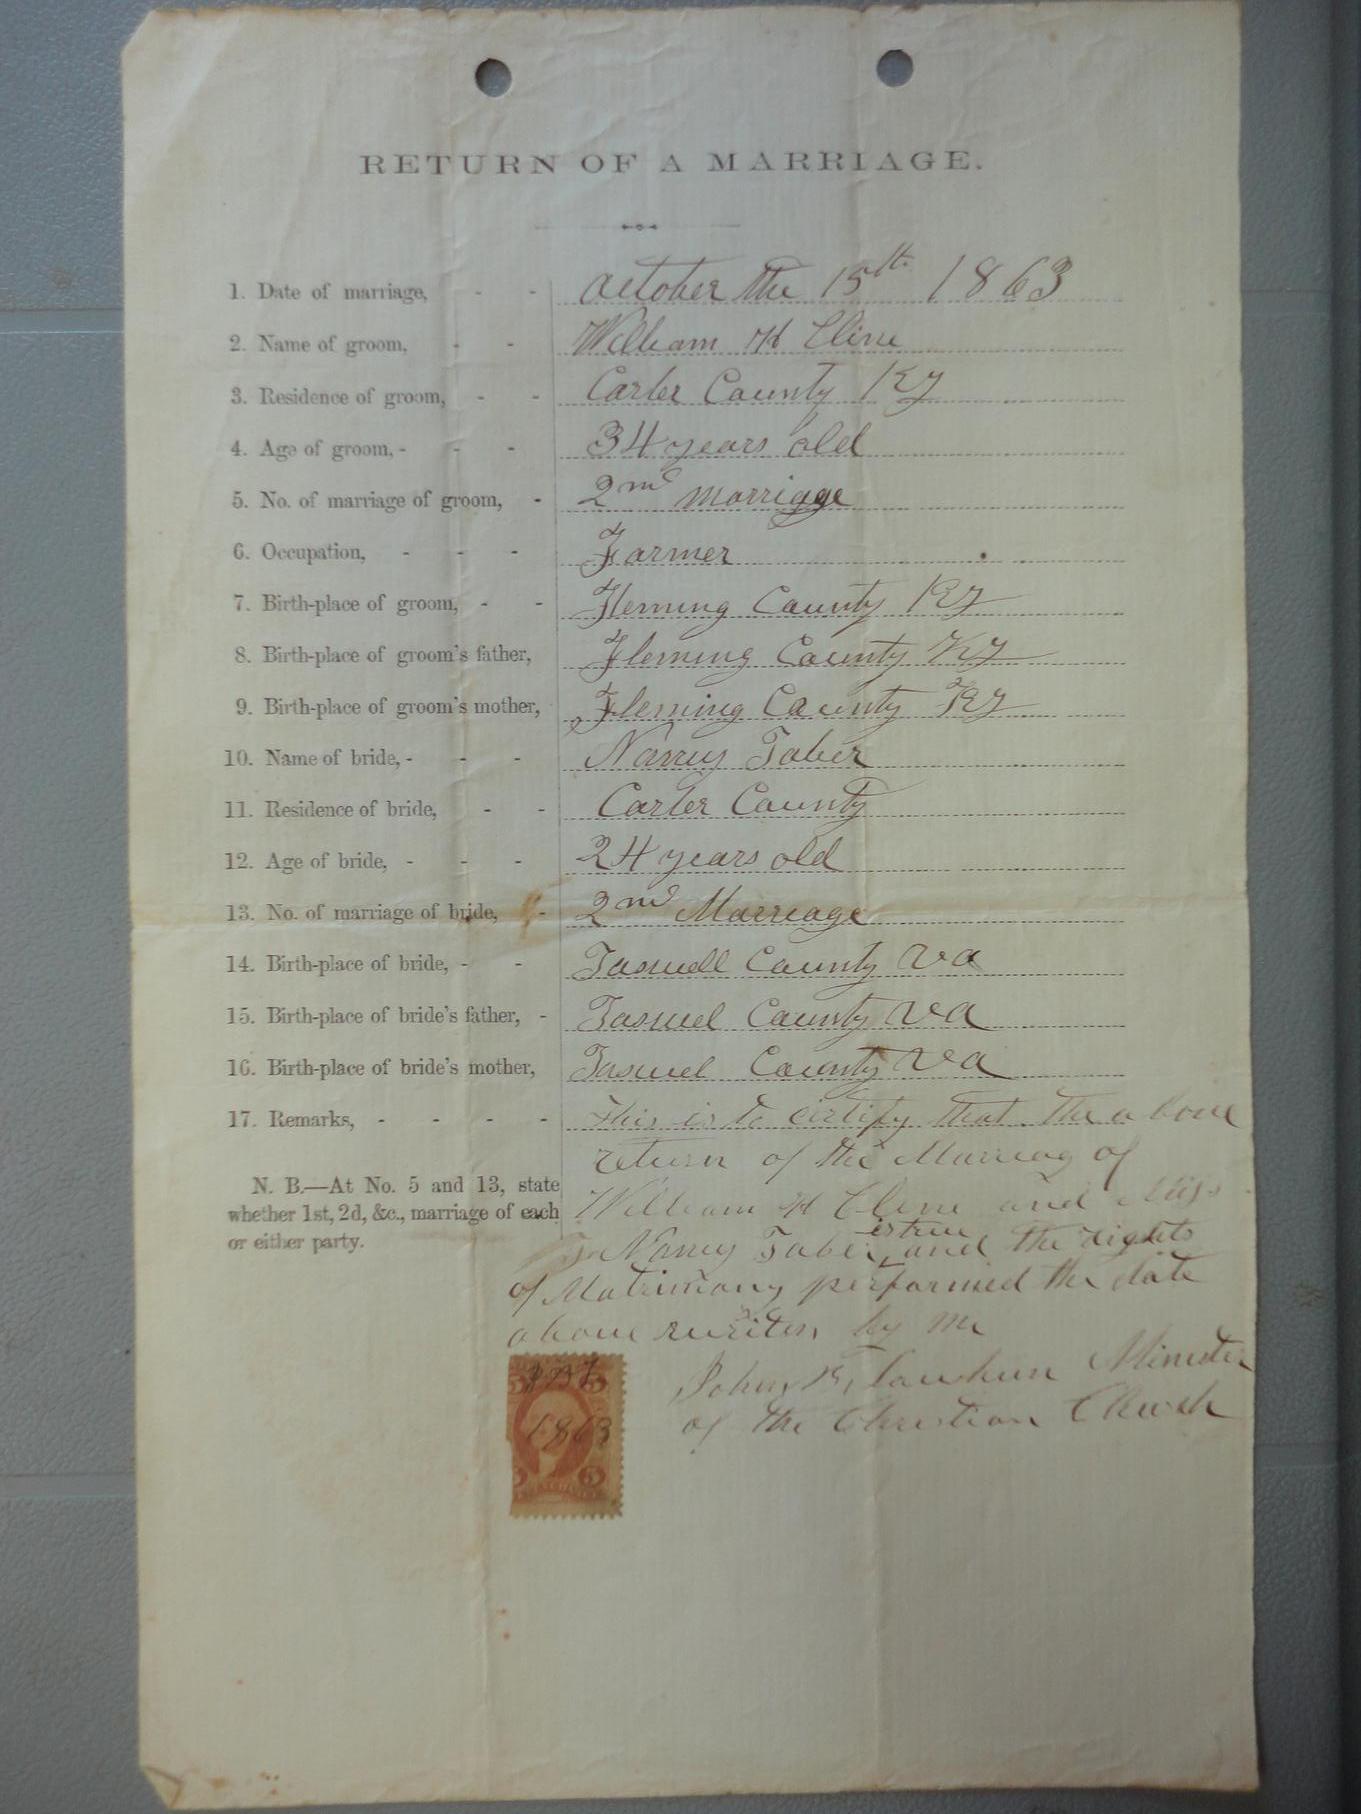 RETURN OF A MARRIAGE.
1. Date of marriage, - - october the 15th 1863
2. Name of groom, - - William H Cline
3. Residence of groom, - - Carter County Ky
4. Age of groom, - - - 34 years old
5. No. of marriage of groom, - 2nd marriage
6. Occupation, - - - Farmer
7. Birth-place of groom, - - Fleming County Ky
8. Birth-place of groom's father, Fleming County Ky
9. Birth-place of groom's mother, Fleming County Ky
10. Name of bride, - - - Nancy Taber
11. Residence of bride, - - Carter County
12. Age of bride, - - - 24 years old
13. No. of marriage of bride, - 2nd Marriage
14. Birth-place of bride, - - Taswell County va
15. Birth-place of bride's father, - Taswel County va
16. Birth-place of bride's mother, Taswel County va
17. Remarks, - - - - This is to certify that the above
return of the Marriag of
N. B.—At No. 5 and 13, state
whether 1st, 2d, &c., marriage of each
or either party.
William H Cline and Miss
Nancy Taber is true and the rights
of Matrimony performed the date
above by me
John Minister
of the Christian Church
1863
5 5